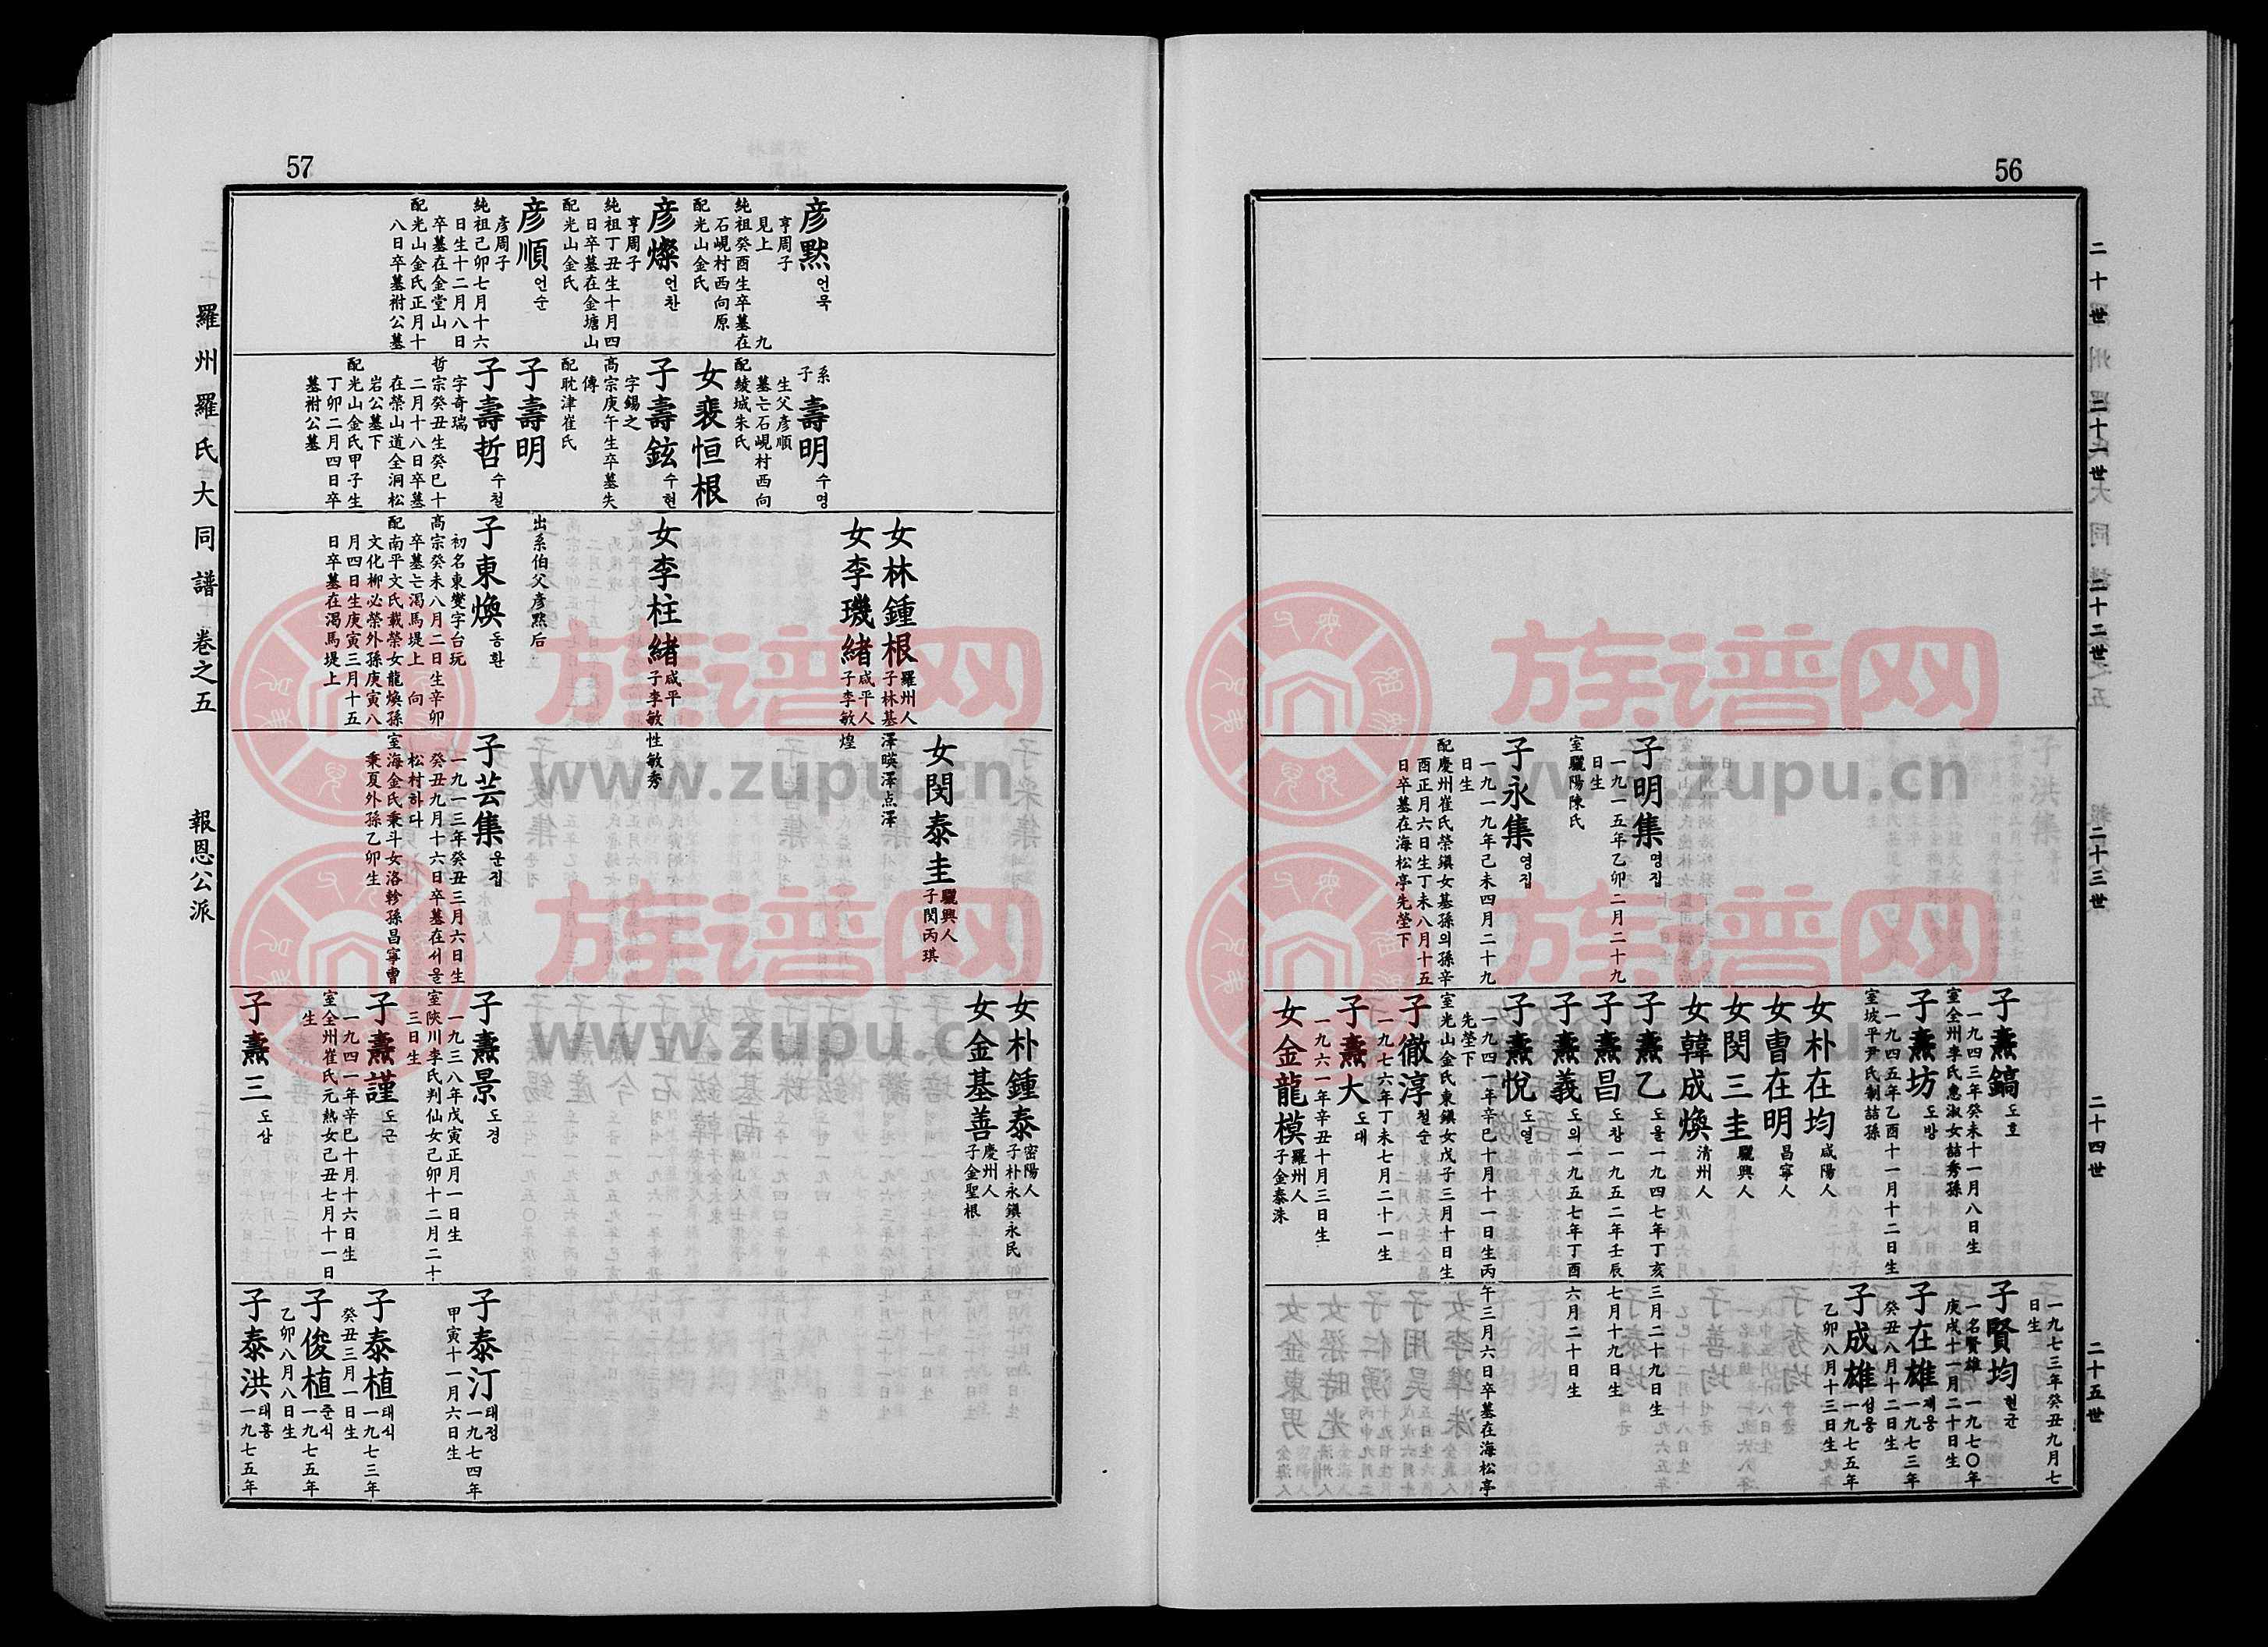 56
二十世
二十一世
二十二世
二十三世
二十四世
二十五世
子明集 명집
一九一五年乙卯二月二十九
日生
室驪陽陳氏
子永集 영집
一九一九年己未四月二十九
日生
配慶州崔氏榮鎭女基孫의孫辛
酉正月六日生丁未八月十五
日卒墓在海松亭先塋下
子燾鎬 도호
一九四三年癸未十一月八日生
室全州李氏惠淑女喆秀孫
子燾坊 도방
一九四五年乙酉十一月十二日生
室坡平尹氏制喆孫
女朴在均 咸陽人
女曺在明 昌寧人
女閔三圭 驪興人
女韓成煥 清州人
子燾乙 도을 一九四七年丁亥三月二十九日生
子燾昌 도창 一九五二年壬辰七月十九日生
子燾義 도의 一九五七年丁酉六月二十日生
子燾悅 도열
一九四一年辛巳十月十一日生丙午三月六日卒墓在海松亭
先塋下
室光山金氏東鎭女戊子三月十日生
子徹淳 철순
一九七六年丁未七月二十一生
子燾大 도대
一九六一年辛丑十月三日生
女金龍模 羅州人
子金泰洙
一九七三年癸丑九月七
日生
子賢均 현균
一名賢雄 一九七〇年
庚戌十一月二十日生
子在雄 재웅 一九七三年
癸丑八月十二日生
子成雄 성웅 一九七五年
乙卯八月十三日生
57
羅州羅氏大同譜 卷之五 報恩公派
彦默 언묵
亨周子
見上 九
純祖癸酉生卒墓在
石峴村西向原
配光山金氏
彦燦 언찬
亨周子
純祖丁丑生十月四
日卒墓在金塘山
配光山金氏
彦順 언순
彦周子
純祖己卯七月十六
日生十二月八日
卒墓在金堂山
配光山金氏正月十
八日卒墓祔公墓
系子壽明 수명
生父彦順
墓亡石峴村西向
配綾城朱氏
女裴恒根
子壽鉉 수현
字錫之
高宗庚午生卒墓失
傳
配耽津崔氏
子壽明
子壽哲 수철
字奇瑞
哲宗癸丑生癸巳十
二月十八日卒墓
在榮山道全洞松
岩公墓下
配光山金氏甲子生
丁卯二月四日卒
墓祔公墓
女林鍾根 羅州人
子林基澤暎澤点澤
女李璣緒 咸平人
子李敏煌
女李柱緒 咸平
子李敏性敏秀
出系伯父彦默后
子東煥 동환
初名東燮字台玩
高宗癸未八月二日生辛卯
卒墓亡渴馬堤上 向
配南平文氏載榮女龍煥孫
文化柳必榮外孫庚寅八
月四日生庚寅三月十五
日卒墓在渴馬堤上
女閔泰圭 驪興人
子閔丙琪
子芸集 운집
一九一三年癸丑三月六日生
癸丑九月十六日卒墓在서울
松村하다
室海金氏秉斗女洛軫孫昌寧曺
秉夏外孫乙卯生
女朴鍾泰 密陽人
子朴永鎭永民
女金基善 慶州人
子金聖根
子燾景 도경
一九三八年戊寅正月一日生
室陜川李氏判仙女己卯十二月二十
三日生
子燾謹 도근
一九四一年辛巳十月十六日生
室全州崔氏元熱女己丑七月十一日
生
子燾三 도삼
子泰汀 태정 一九七四年
甲寅十一月六日生
子泰植 태식 一九七三年
癸丑三月一日生
子俊植 준식 一九七五年
乙卯八月八日生
子泰洪 태홍 一九七五年
族谱网
www.zupu.cn
族谱网
www.zupu.cn
族谱网
www.zupu.cn
族谱网
www.zupu.cn